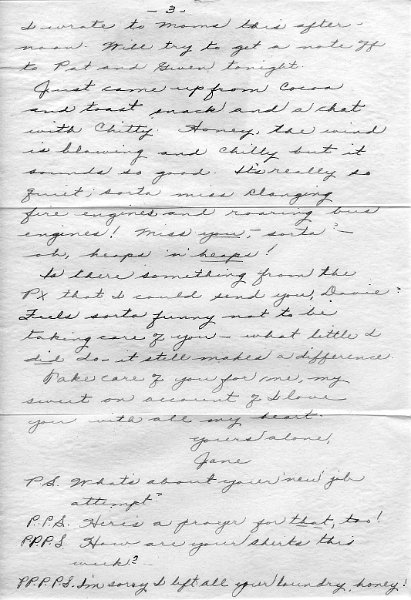 - 3 -
I wrote to Moms this after-
noon. Will try to get a note off
to Pat and Gwen tonight.
Just came up from Cocoa
and toast snack and a chat
with Chitty. Honey, the wind
is blowing and chilly but it
sounds so good. It's really so
quiet; sorta miss clanging
fire engines and roaring bus
engines! Miss you, - sorta? -
oh, heaps 'n' heaps!
Is there something from the
PX that I could send you, Davie?
Feels sorta funny not to be
taking care of you - what little I
did do - it still makes a difference
Take care of you for me, my
sweet on account of I love
you with all my heart.
yours alone,
Jane
P.S. What's about your 'new' job
attempt?
P.P.S. Here's a prayer for that, too!
P.P.P.S How are your shirts this
week? -
P.P.P.P.S. I'm sorry I left all your laundry, honey!